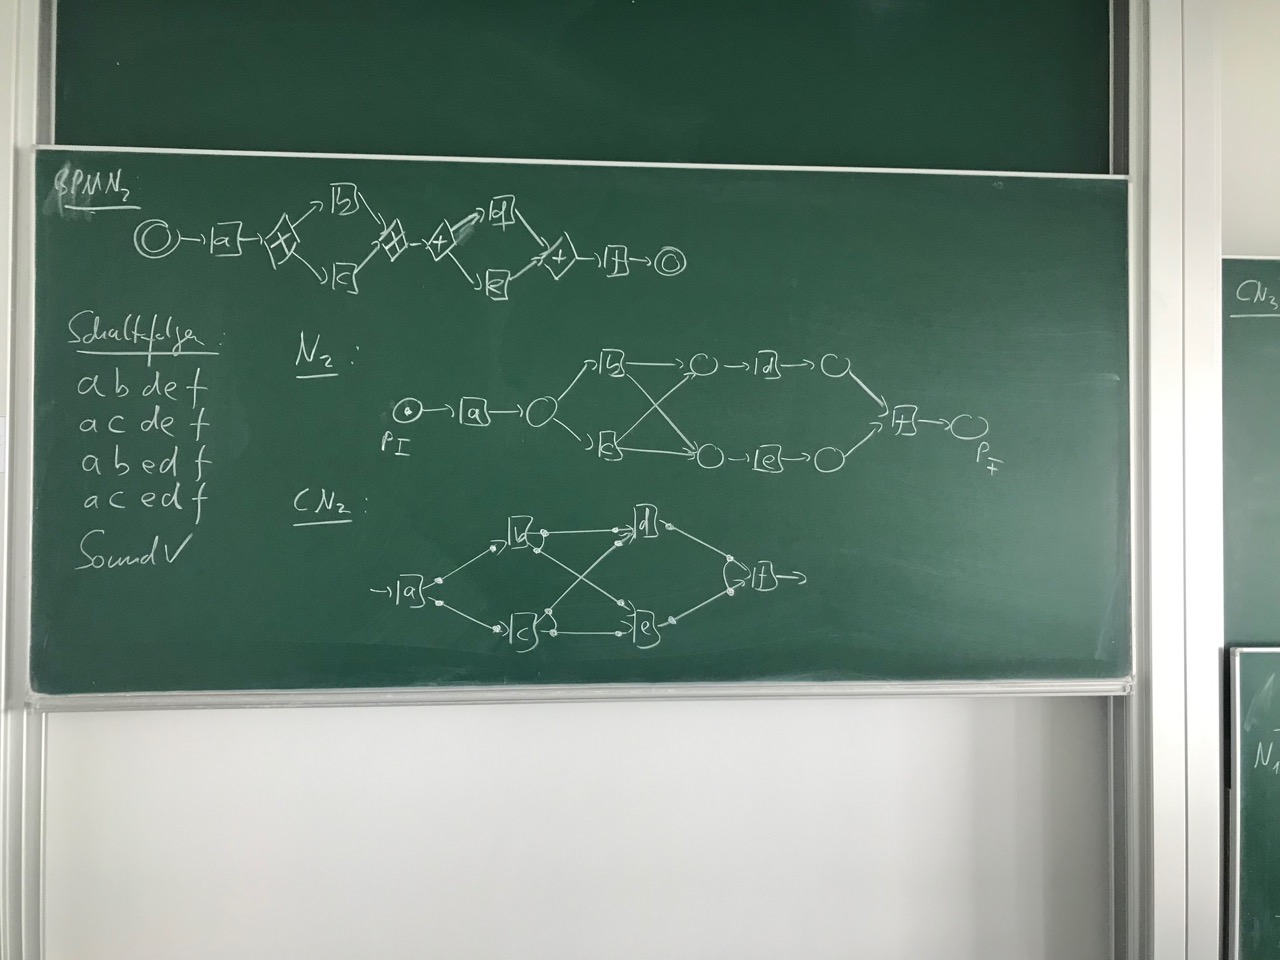 BPMN₂
a b c + d e + f
Schaltfolgen:
a b d e f
a c d e f
a b e d f
a c e d f
Sound ✓
N₂:
P_I a b c d e f P_F
CN₂:
a b c d e f
CN₃
N₁